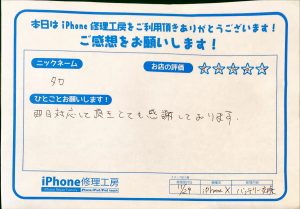 本日は iPhone 修理工房をご利用頂きありがとうございます！
ご感想をお願いします！
ニックネーム
お店の評価 ☆☆☆☆☆
ひとことお願いします！
即日対応して頂きとても感謝しております
iPhone修理工房
iPhone X
バッテリー交換